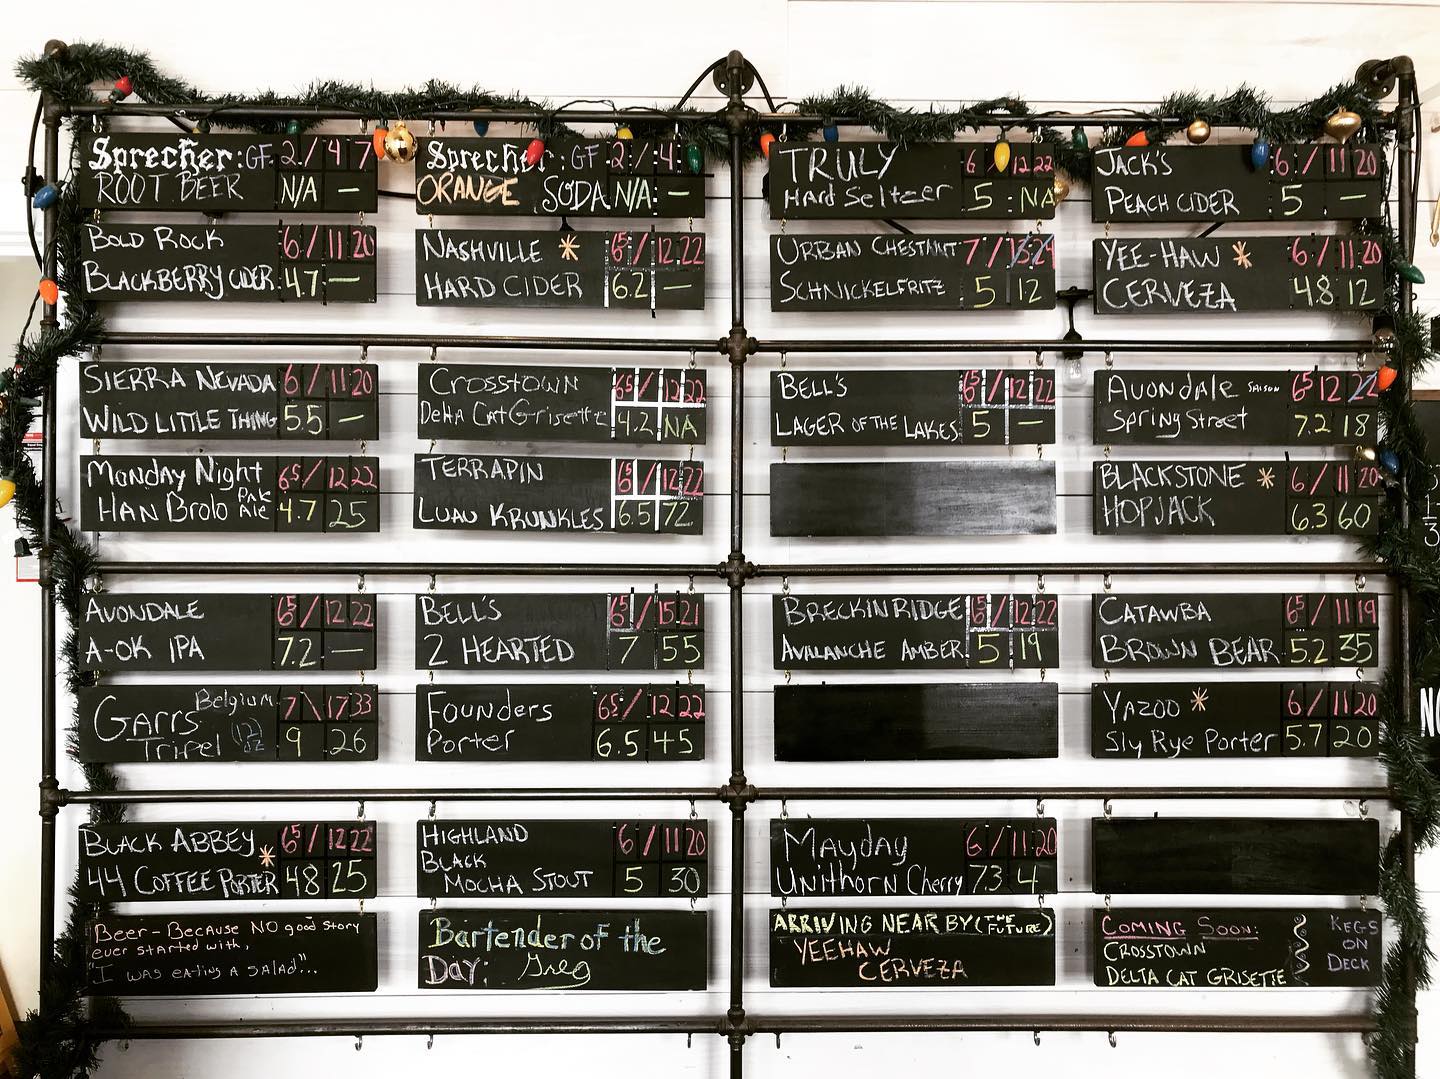 Sprecher: GF 2 / 4 7
ROOT BEER N/A —
Sprecher: GF 2 / 4
ORANGE SODA N/A —
TRULY 6 12 22
Hard Seltzer 5 NA
JACK'S 6 / 11 20
PEACH CIDER 5 —
BOLD ROCK 6 / 11 20
BLACKBERRY CIDER 4.7 —
NASHVILLE * 65 / 12 22
HARD CIDER 6.2 —
URBAN CHESTNUT 7 /
SCHNICKELFRITZ 5 12
YEE-HAW * 6 / 11 20
CERVEZA 4.8 12
SIERRA NEVADA 6 / 11 20
WILD LITTLE THING 5.5 —
CROSSTOWN 65 / 12 22
Delta Cat Grisette 4.2 NA
BELL'S 65 / 12 22
LAGER OF THE LAKES 5 —
AVONDALE SAISON 65 12 22
Spring Street 7.2 18
Monday Night 65 / 12 22
HAN Brolo PALE ALE 4.7 25
TERRAPIN 65 / 12 22
LUAU KRUNKLES 6.5 72
BLACKSTONE * 6 / 11 20
HOPJACK 6.3 60
AVONDALE 65 / 12 22
A-OK IPA 7.2 —
BELL'S 65 / 15 21
2 HEARTED 7 55
BRECKINRIDGE 65 / 12 22
AVALANCHE AMBER 5 19
CATAWBA 65 / 11 19
BROWN BEAR 5.2 35
Garrs Belgium 7 \ 17 33
Tripel 12 oz 9 26
Founders 65 / 12 22
Porter 6.5 45
YAZOO * 6 / 11 20
Sly Rye Porter 5.7 20
BLACK ABBEY * 65 / 12 22
44 COFFEE PORTER 48 25
HIGHLAND 6 / 11 20
BLACK
MOCHA STOUT 5 30
Mayday 6 / 11 20
Unithorn Cherry 7.3 4
Beer - Because NO good story
ever started with,
"I was eating a salad"...
Bartender of the
DAY: Greg
ARRIVING NEAR BY (THE FUTURE)
YEEHAW
CERVEZA
COMING SOON:
CROSSTOWN
DELTA CAT GRISETTE
KEGS
ON
DECK